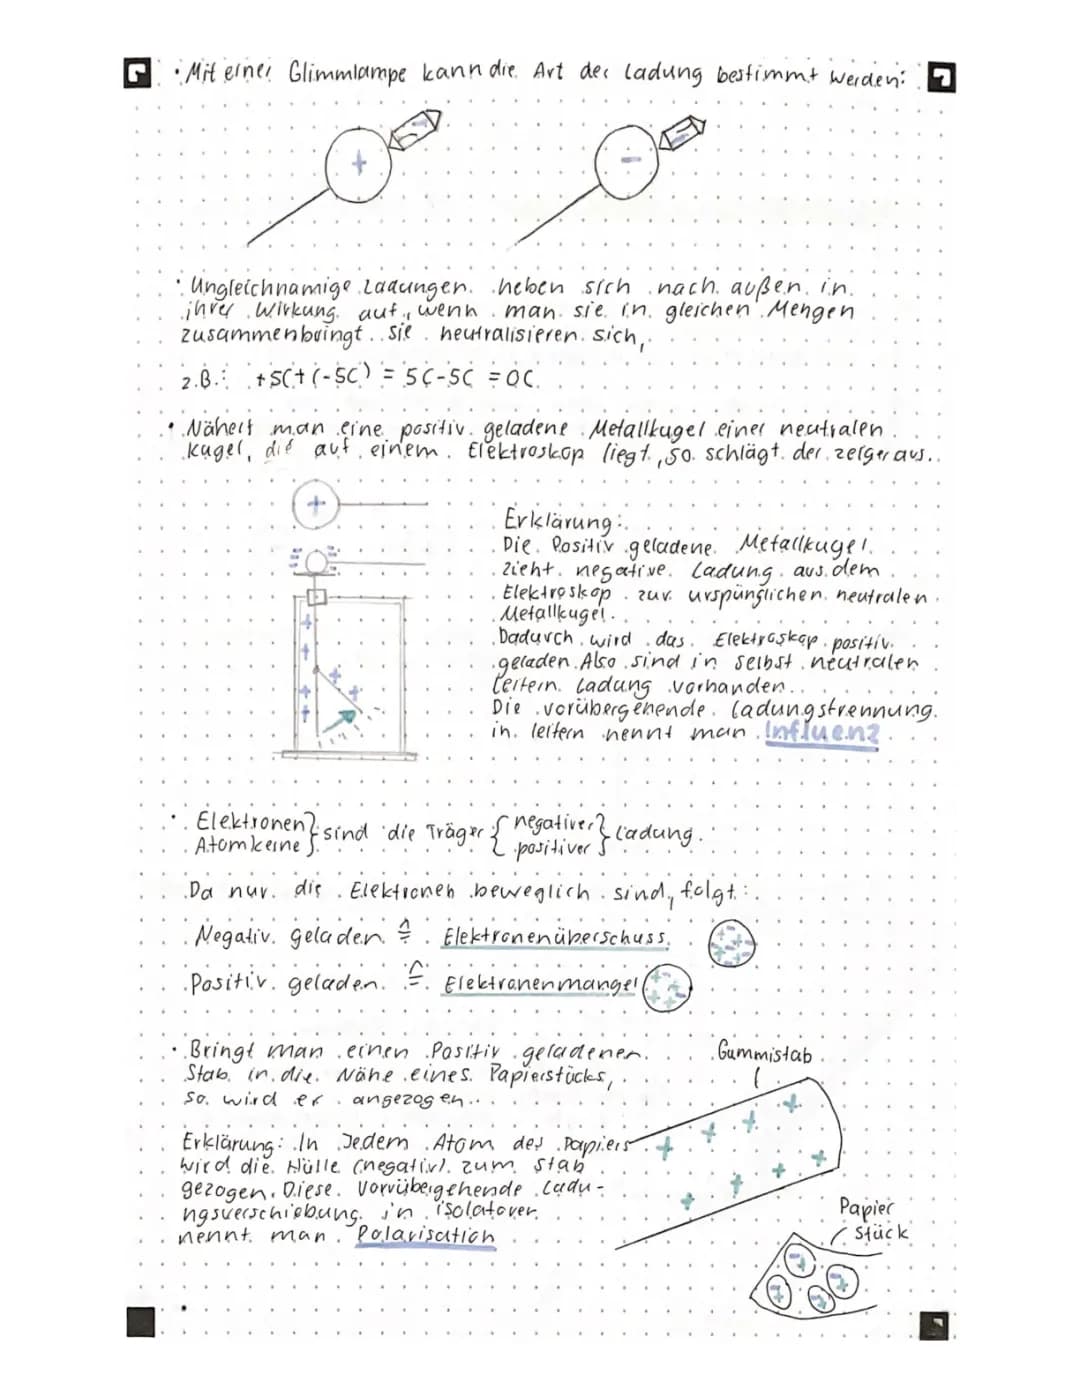 • Mit einer Glimmlampe kann die Art der Ladung bestimmt werden:
+ - - -
• Ungleichnamige Ladungen heben sich nach außen in
ihrer Wirkung auf, wenn man sie in gleichen Mengen
zusammenbringt. Sie neutralisieren sich,
z.B.: +5C+(-5C) = 5C-5C = 0C
• Nähert man eine positiv geladene Metallkugel einer neutralen
Kugel, die auf einem Elektroskop liegt, so schlägt der Zeiger aus.
+
Erklärung:
Die Positiv geladene Metallkugel
zieht negative Ladung aus dem
Elektroskop zur urspünglichen neutralen
Metallkugel.
Dadurch wird das Elektroskop positiv
geladen. Also sind in selbst neutralen
Leitern Ladung vorhanden.
Die vorübergehende Ladungstrennung
in leitern nennt man Influenz
• Elektronen } sind die Träger { negativer } Ladung.
Atomkerne } { positiver }
Da nur die Elektronen beweglich sind, folgt:
Negativ geladen ≙ Elektronenüberschuss
Positiv geladen ≙ Elektronenmangel
• Bringt man einen Positiv geladenen
Stab in die Nähe eines Papierstücks,
so wird er angezogen.
Gummistab
Erklärung: In Jedem Atom des Papiers
wird die Hülle (negativ) zum Stab
gezogen. Diese Vorrübergehende Ladu-
ngsverschiebung in isolatoren
nennt man Polarisation
Papier
Stück